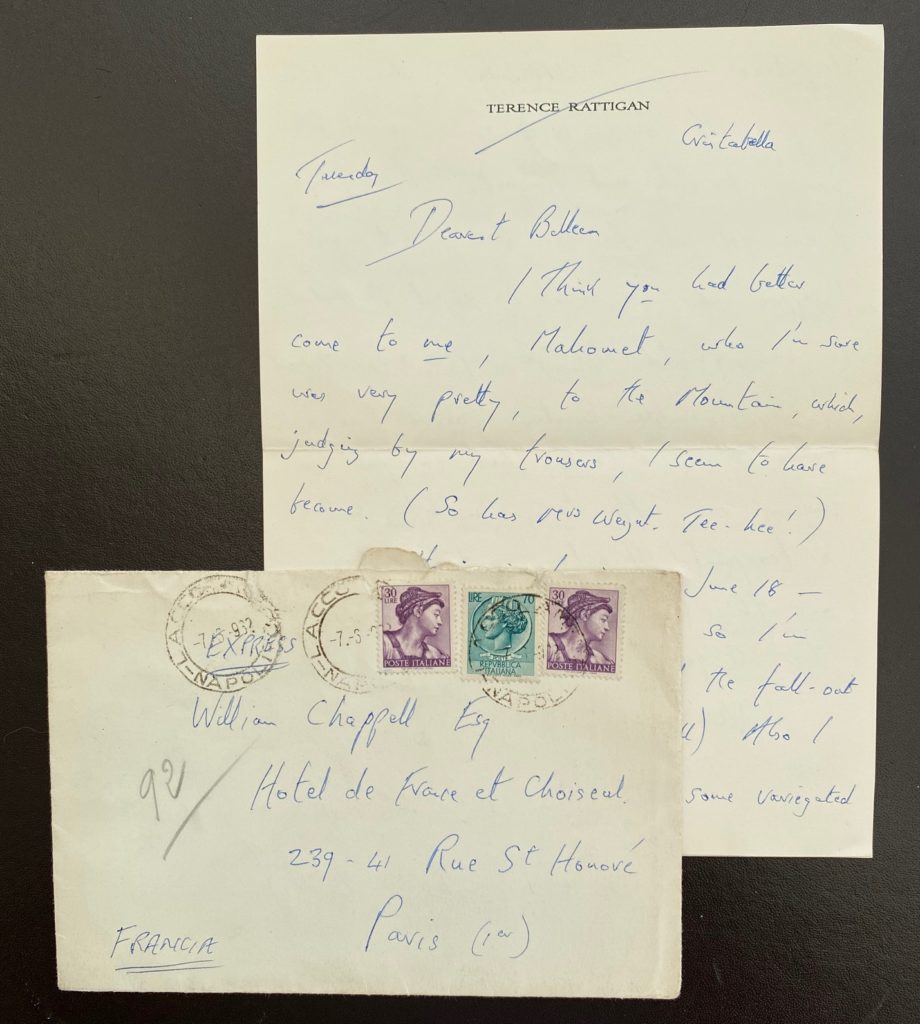 TERENCE RATTIGAN
Cristabella
Tuesday
Dearest
I think you had better
come to me, Mahomet, who I'm sure
was very pretty, to the Mountain, which,
judging by my trousers, I seem to have
become. (So has Mrs Weyat. Tee-hee!)
June 18 —
so I'm
the fall-out
Also I
some variegated
30 LIRE
POSTE ITALIANE
LIRE 70
REPUBBLICA ITALIANA
30
POSTE ITALIANE
NAPOLI
EXPRESS
William Chappell Esq
92
Hotel de France et Choiseul.
239-41 Rue St Honoré
Paris (1er)
FRANCIA